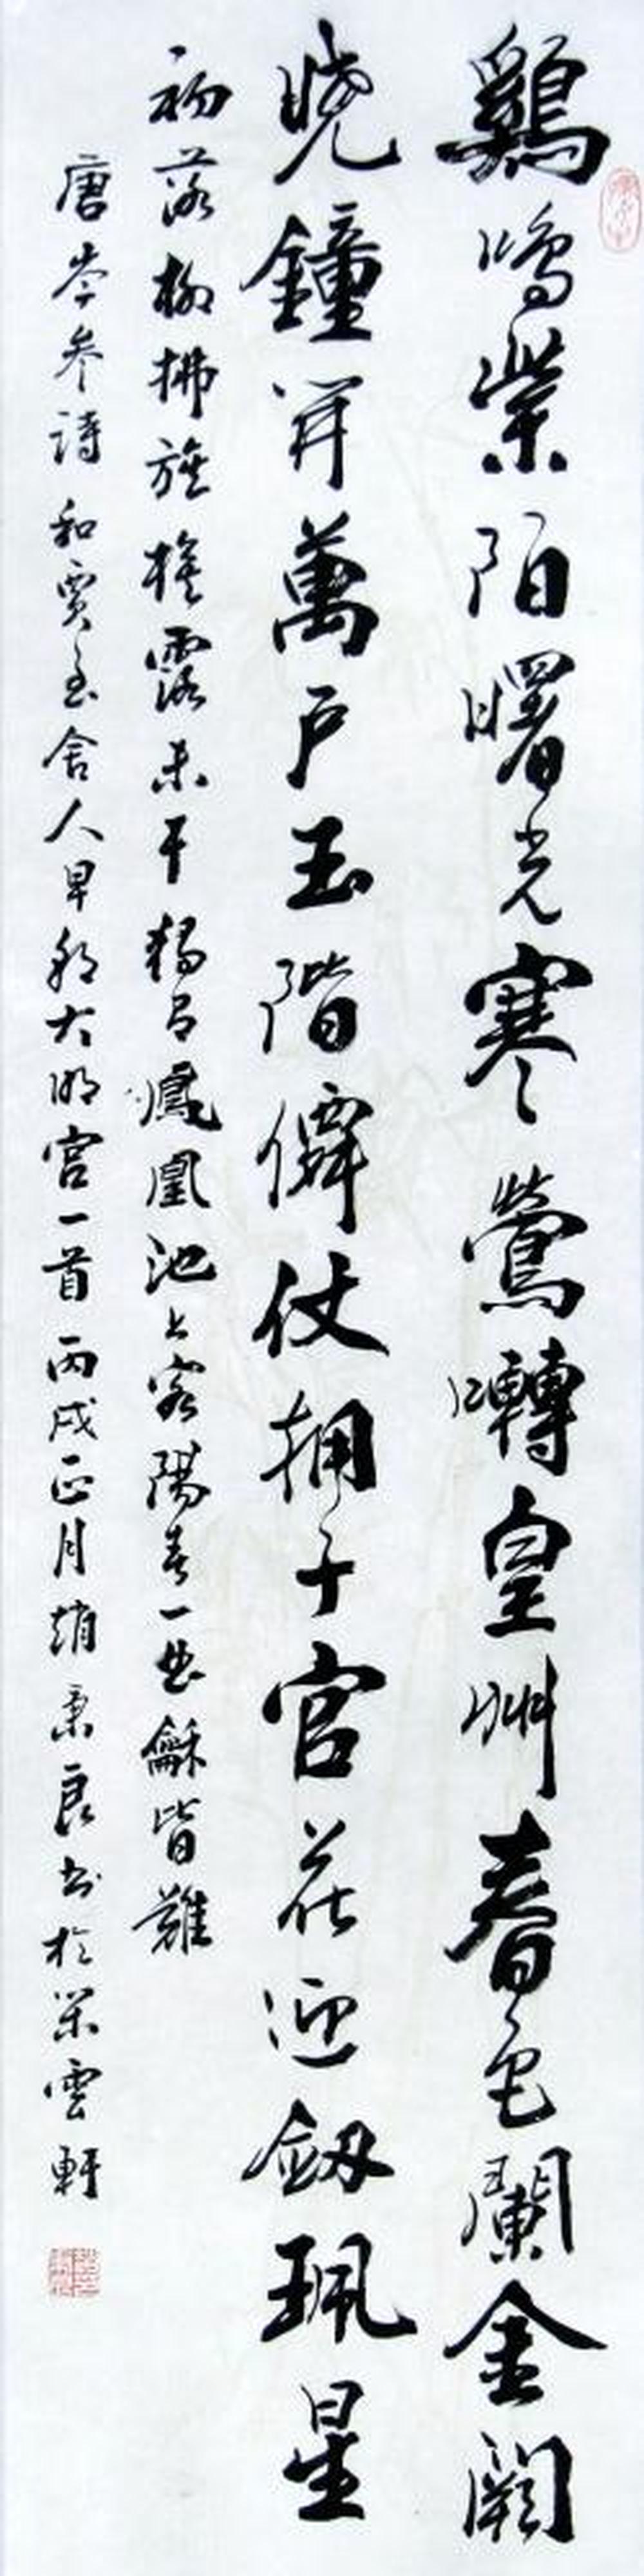 鷄鳴紫陌曙光寒鶯囀皇州春色闌金闕
曉鐘開萬戶玉階僊仗擁千官花迎劍珮星
初落柳拂旌旗露未干獨有鳳凰池上客陽春一曲龢皆難
唐岑參詩和賈至舍人早朝大明宮一首丙戌正月趙秉良書於雲軒